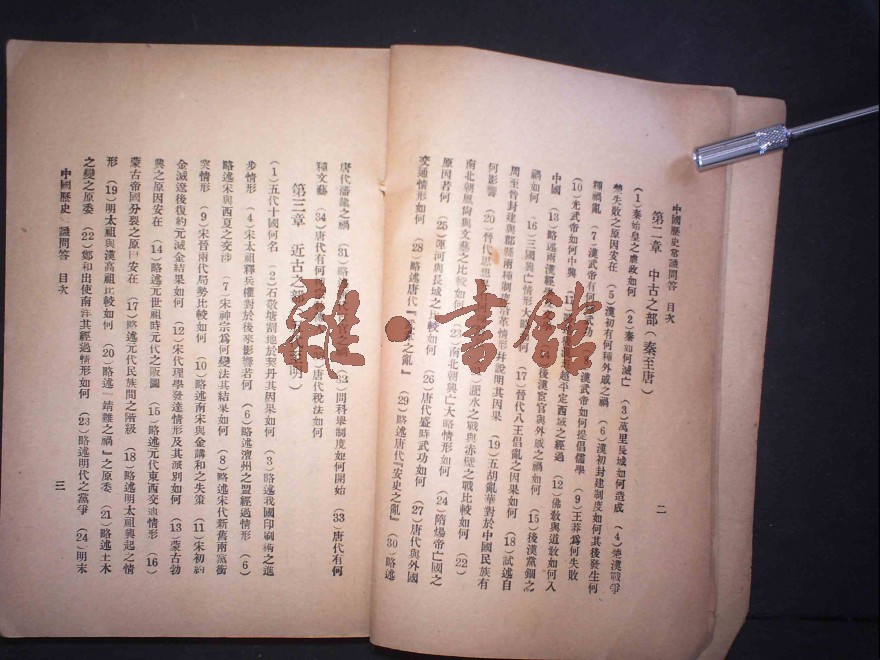 中國歷史常識問答 目次
二
第二章 中古之部（秦至唐）
（1）秦始皇之虐政如何 （2）秦如何滅亡 （3）萬里長城如何造成 （4）楚漢戰爭
楚失敗之原因安在 （5）漢初有何種外戚之禍 （6）漢初封建制度如何其後發生何
種禍亂 （7）漢武帝有何武功 漢武帝如何提倡儒學 （9）王莽爲何失敗
（10）光武帝如何中興 超平定西域之經過 （12）佛敎與道敎如何入
中國 （13）略述兩漢經學 後漢宦官與外戚之禍如何 （15）後漢黨錮之
禍如何 （16）三國興亡情形大略 （17）晉代八王倡亂之因果如何 （18）試述自
周至晉封建與郡縣兩種制度沿革情形幷說明其因果 （19）五胡亂華對於中國民族有
何影響 （20）晉代思想 淝水之戰與赤壁之戰比較如何 （22）
南北朝風尙與文藝之比較如何 （23）南北朝興亡大略情形如何 （24）隋煬帝亡國之
原因若何 （25）運河與長城之比較如何 （26）唐代盛時武功如何 （27）唐代與外國
交通情形如何 （28）略述唐代『武韋之亂』 （29）略述唐代『安史之亂』 （30）略述
唐代藩鎭之禍 （31）略 官之禍 （32）問科舉制度如何開始 （33）唐代有何
種文藝 （34）唐代有何 唐代稅法如何
第三章 近古之部 至明）
（1）五代十國何名 （2）石敬塘割地於契丹其因果如何 （3）略述我國印刷術之進
步情形 （4）宋太祖釋兵權對於後來影響若何 （6）略述澶州之盟經過情形 （6）
略述宋與西夏之交涉 （7）宋神宗爲何變法其結果如何 （8）略述宋代新舊兩黨衝
突情形 （9）宋晉兩代局勢比較如何 （10）略述南宋與金講和之失策 （11）宋初約
金滅遼後復約元滅金結果如何 （12）宋代理學發達情形及其派別如何 （13）蒙古勃
興之原因安在 （14）略述元世祖時元代之版圖 （15）略述元代東西交通情形 （16）
蒙古帝國分裂之原因安在 （17）略述元代民族間之階級 （18）略述明太祖興起之情
形 （19）明太祖與漢高祖比較如何 （20）略述『靖難之禍』之原委 （21）略述土木
之變之原委 （22）鄭和出使南洋其經過情形如何 （23）略述明代之黨爭 （24）明末
中國歷史 識問答 目次
三
雜·書館